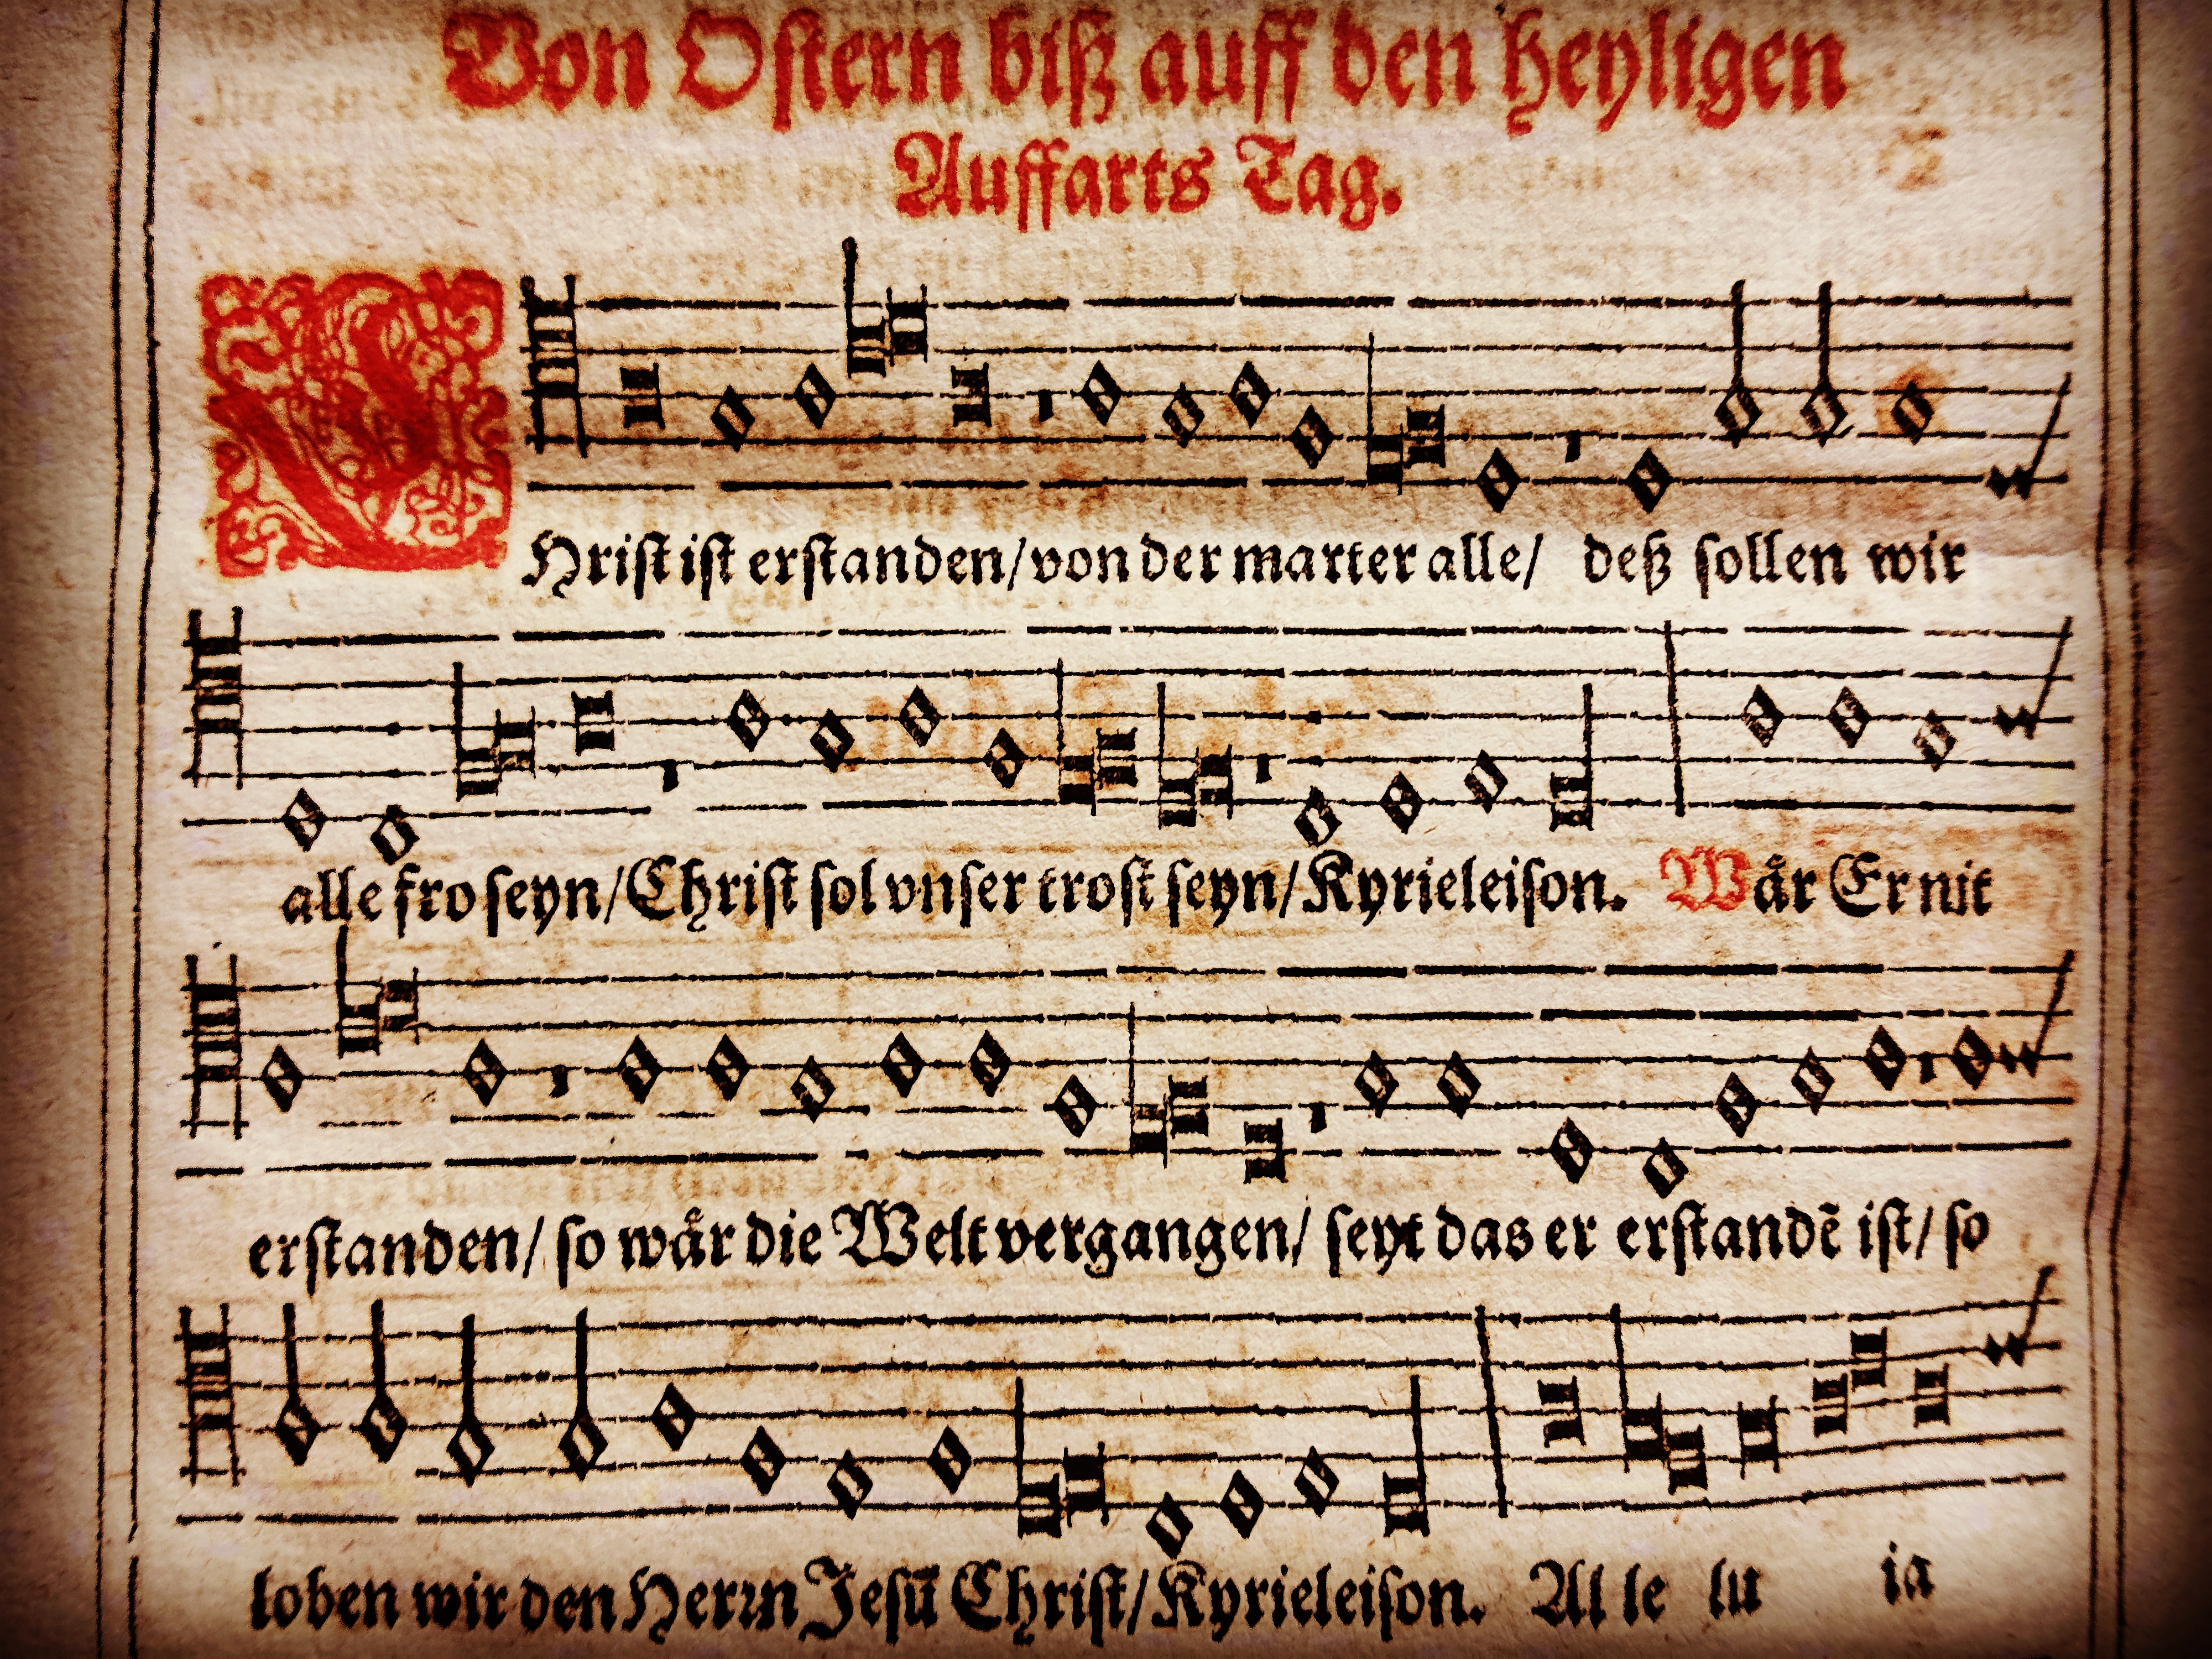 Von Ostern biß auff den heyligen
Auffarts Tag.
CHrist ist erstanden/ von der marter alle/ deß sollen wir
alle fro seyn/ Christ sol vnser trost seyn/ Kyrieleison. Wår Er nit
erstanden/ so wår die Welt vergangen/ seyt das er erstandẽ ist/ so
loben wir den Herꝛn Jesũ Christ/ Kyrieleison. Al le lu ia